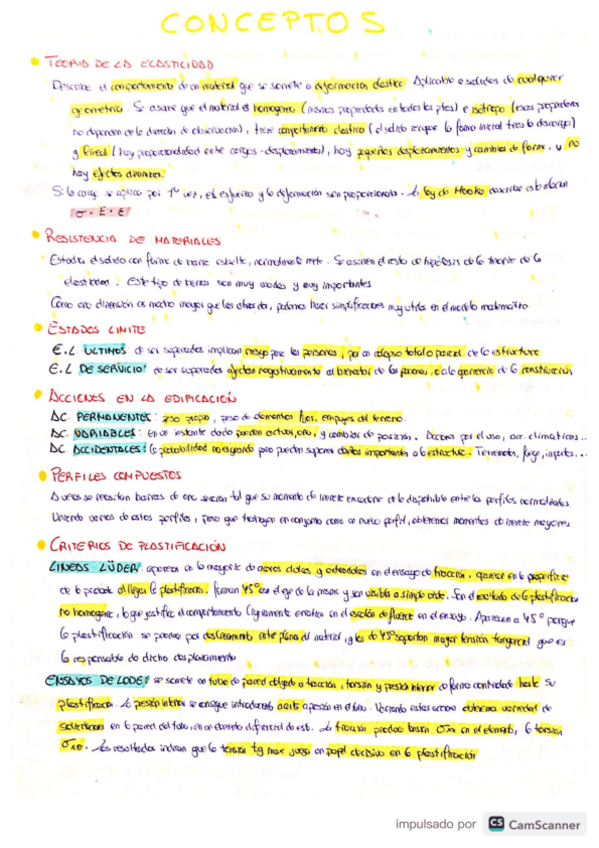 CONCEPTOS
• TEORIA DE LA ELASTICIDAD
Describe el comportamiento de un material que se somete a deformacion elastica. Aplicable a solidos de cualquier
geometria. Se asume que el material es homogeneo (mismas propiedades en todos los ptos) e isotropo (esas propiedades
no dependen de la direccion de observacion), tiene comportamiento elastico (el solido recupera la forma inicial tras la descarga)
y lineal (hay proporcionalidad entre cargas-desplazamientos), hay pequeños desplazamientos y cambios de forma y no
hay efectos dinamicos.
Si la carga se aplica por 1ª vez, el esfuerzo y la deformacion son proporcionales. La ley de Hooke describe esta relacion
σ = E · ε
• RESISTENCIA DE MATERIALES
Estudia el solido con forma de barra esbelta, normalmente recta. Se asumen el resto de hipótesis de la teoria de la
elasticidad. Este tipo de barras son muy usadas y muy importantes
Como una dimension es mucho mayor que las otras dos, podemos hacer simplificaciones muy utiles en el modelo matematico
• ESTADOS LIMITE
E.L ULTIMOS: de ser superados implican riesgo para las personas, por un colapso total o parcial de la estructura
E.L DE SERVICIO: de ser superados afectan negativamente al bienestar de las personas, o a la apariencia de la construccion
• ACCIONES EN LA EDIFICACIÓN
AC. PERMANENTES: peso propio, peso de elementos fijos, empujes del terreno.
AC. VARIABLES: En un instante dado pueden actuar, o no, y cambiar de posicion. por el uso, acc. climaticas...
AC. ACCIDENTALES: la probabilidad no es grande pero pueden suponer daños importantes a la estructura. Terremotos, fuego, impactos...
• PERFILES COMPUESTOS
A veces se necesitan barras de una seccion tal que su momento de inercia excede de lo disponible entre los perfiles normalizados.
Uniendo varios de estos perfiles, para que trabajen en conjunto como un nuevo perfil, obtenemos momentos de inercia mayores
• CRITERIOS DE PLASTIFICACIÓN
LINEAS LÜDER: aparecen en la mayoria de aceros dulces y extrudidos en ensayo de traccion, aparecen en la superficie
de la probeta al llegar a la plastificacion, forman 45° con el eje de la misma y son visibles a simple vista. Son el resultado de la plastificacion
no homogenea, lo que justifica el comportamiento ligeramente erratico en el escalon de fluencia en el ensayo. Aparecen a 45° porque
la plastificacion se produce por deslizamiento entre planos del material, y los de 45° soportan mayor tension tangencial que es
la responsable de dicho desplazamiento
ENSAYOS DE LODE: se somete un tubo de pared delgada a traccion, torsion y presion interior de forma controlada hasta su
plastificacion. La presion interior se consigue introduciendo aceite a presion en el tubo. Variando estas acciones obtenemos variedad de
solicitaciones en la pared del tubo, en un elemento diferencial de est. La traccion produce tension σxx en el elemento, la torsion
Los resultados indican que la tension tg max juega un papel decisivo en la plastificación
impulsado por CS CamScanner